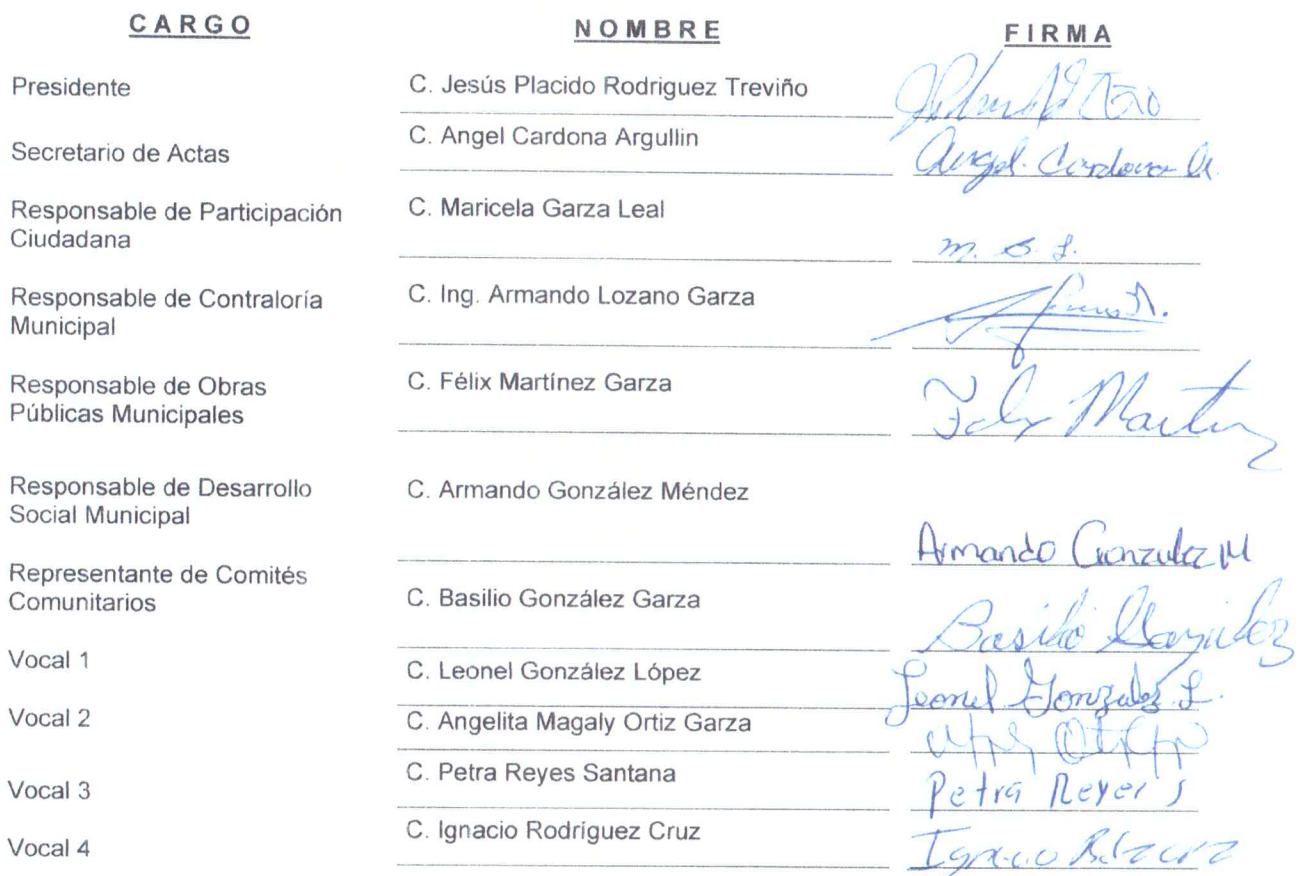 CARGO NOMBRE FIRMA
Presidente C. Jesús Placido Rodriguez Treviño
Secretario de Actas C. Angel Cardona Argullin Angel Cardona A.
Responsable de Participación C. Maricela Garza Leal
Ciudadana m. G. L.
Responsable de Contraloría C. Ing. Armando Lozano Garza
Municipal
Responsable de Obras C. Félix Martínez Garza
Públicas Municipales Felix Martinez
Responsable de Desarrollo C. Armando González Méndez
Social Municipal
Armando Gonzalez M
Representante de Comités
Comunitarios C. Basilio González Garza
Basilio Gonzalez
Vocal 1 C. Leonel González López
Leonel Gonzalez L.
Vocal 2 C. Angelita Magaly Ortiz Garza
Vocal 3 C. Petra Reyes Santana Petra Reyes S
Vocal 4 C. Ignacio Rodríguez Cruz Ignacio